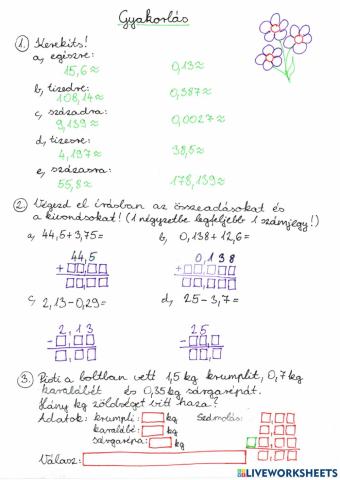 Gyakorlás
1. Kerekíts!
a, egészre:
15,6≈ 0,13≈
b, tizedre:
108,14≈ 0,387≈
c, századra:
9,139≈ 0,0027≈
d, tízesre:
4,197≈ 38,5≈
e, százasra:
55,8≈ 178,139≈
2. Végezd el írásban az összeadásokat és
a kivonásokat! (1 négyzetbe legfeljebb 1 számjegy!)
a, 44,5+3,75= b, 0,138+12,6=
44,5 0,138
+ , + ,
c, 2,13-0,29= d, 25-3,7=
2,13 25
- , - ,
3. Peti a boltban vett 1,5 kg krumplit, 0,7 kg
karalábét és 0,35 kg sárgarépát.
Hány kg zöldséget vitt haza?
Adatok: krumpli: kg Számolás:
karalábé: kg
sárgarépa: kg
Válasz:
LIVEWORKSHEETS